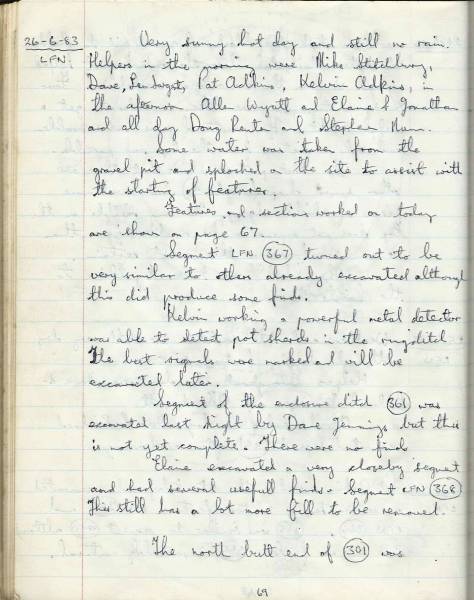 26-6-83 Very sunny hot day and still no rain.
LFN Helpers in the morning were Mike Stitchbury,
Dave, Len, Pat Adkins, Kelvin Adkins, in
the afternoon Allen Wyatt and Elaine & Jonathan
and all day Doug Rente and Stephen Nunn.
Some water was taken from the
gravel pit and splashed on the site to assist with
the starting of features.
Features and sections worked on today
are shown on page 67.
Segment LFN (367) turned out to be
very similar to others already excavated although
this did produce some finds.
Kelvin working a powerful metal detector
was able to detect pot sherds in the ringditch
The best signals were marked and will be
excavated later.
Segment of the enclosure ditch (361) was
excavated last night by Dave Jennings but this
is not yet complete. There were no finds
Elaine excavated a very closeby segment
and had several usefull finds. Segment LFN (368)
This still has a lot more fill to be removed.
The north butt end of (301) was
69